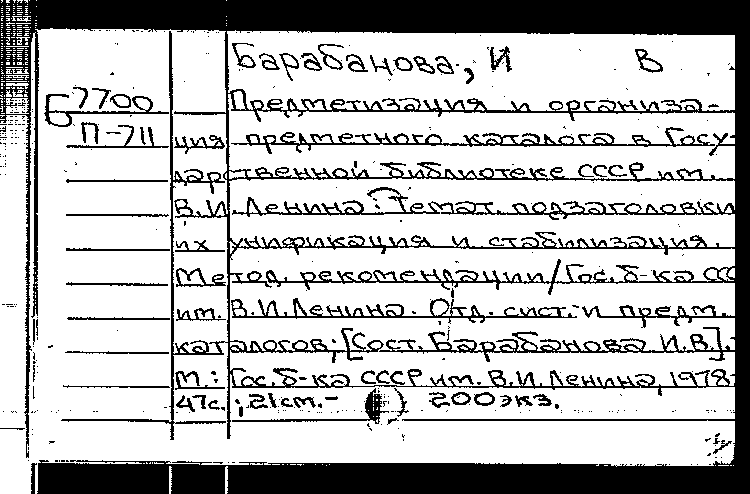 Барабанова, И В
Б 7700
П-711
Предметизация и организа-
ция предметного каталога в Госу-
дарственной библиотеке СССР им.
В.И.Ленина: Темат. подзаголовки
их унификация и стабилизация.
Метод. рекомендации/Гос. б-ка ССС
им. В.И.Ленина. Отд. сист. и предм.
каталогов; [Сост. Барабанова И.В.].
М.: Гос. б-ка СССР им. В.И.Ленина, 1978
47с.; 21см.- 200экз.